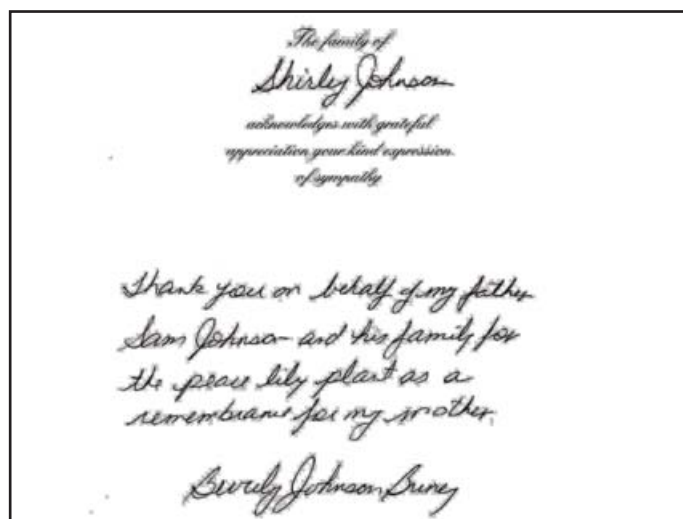 The family of
Shirley Johnson
acknowledges with grateful
appreciation your kind expression
of sympathy
Thank you on behalf of my father
Sam Johnson and his family for
the peace lily plant as a
remembrance for my mother.
Beverly Johnson